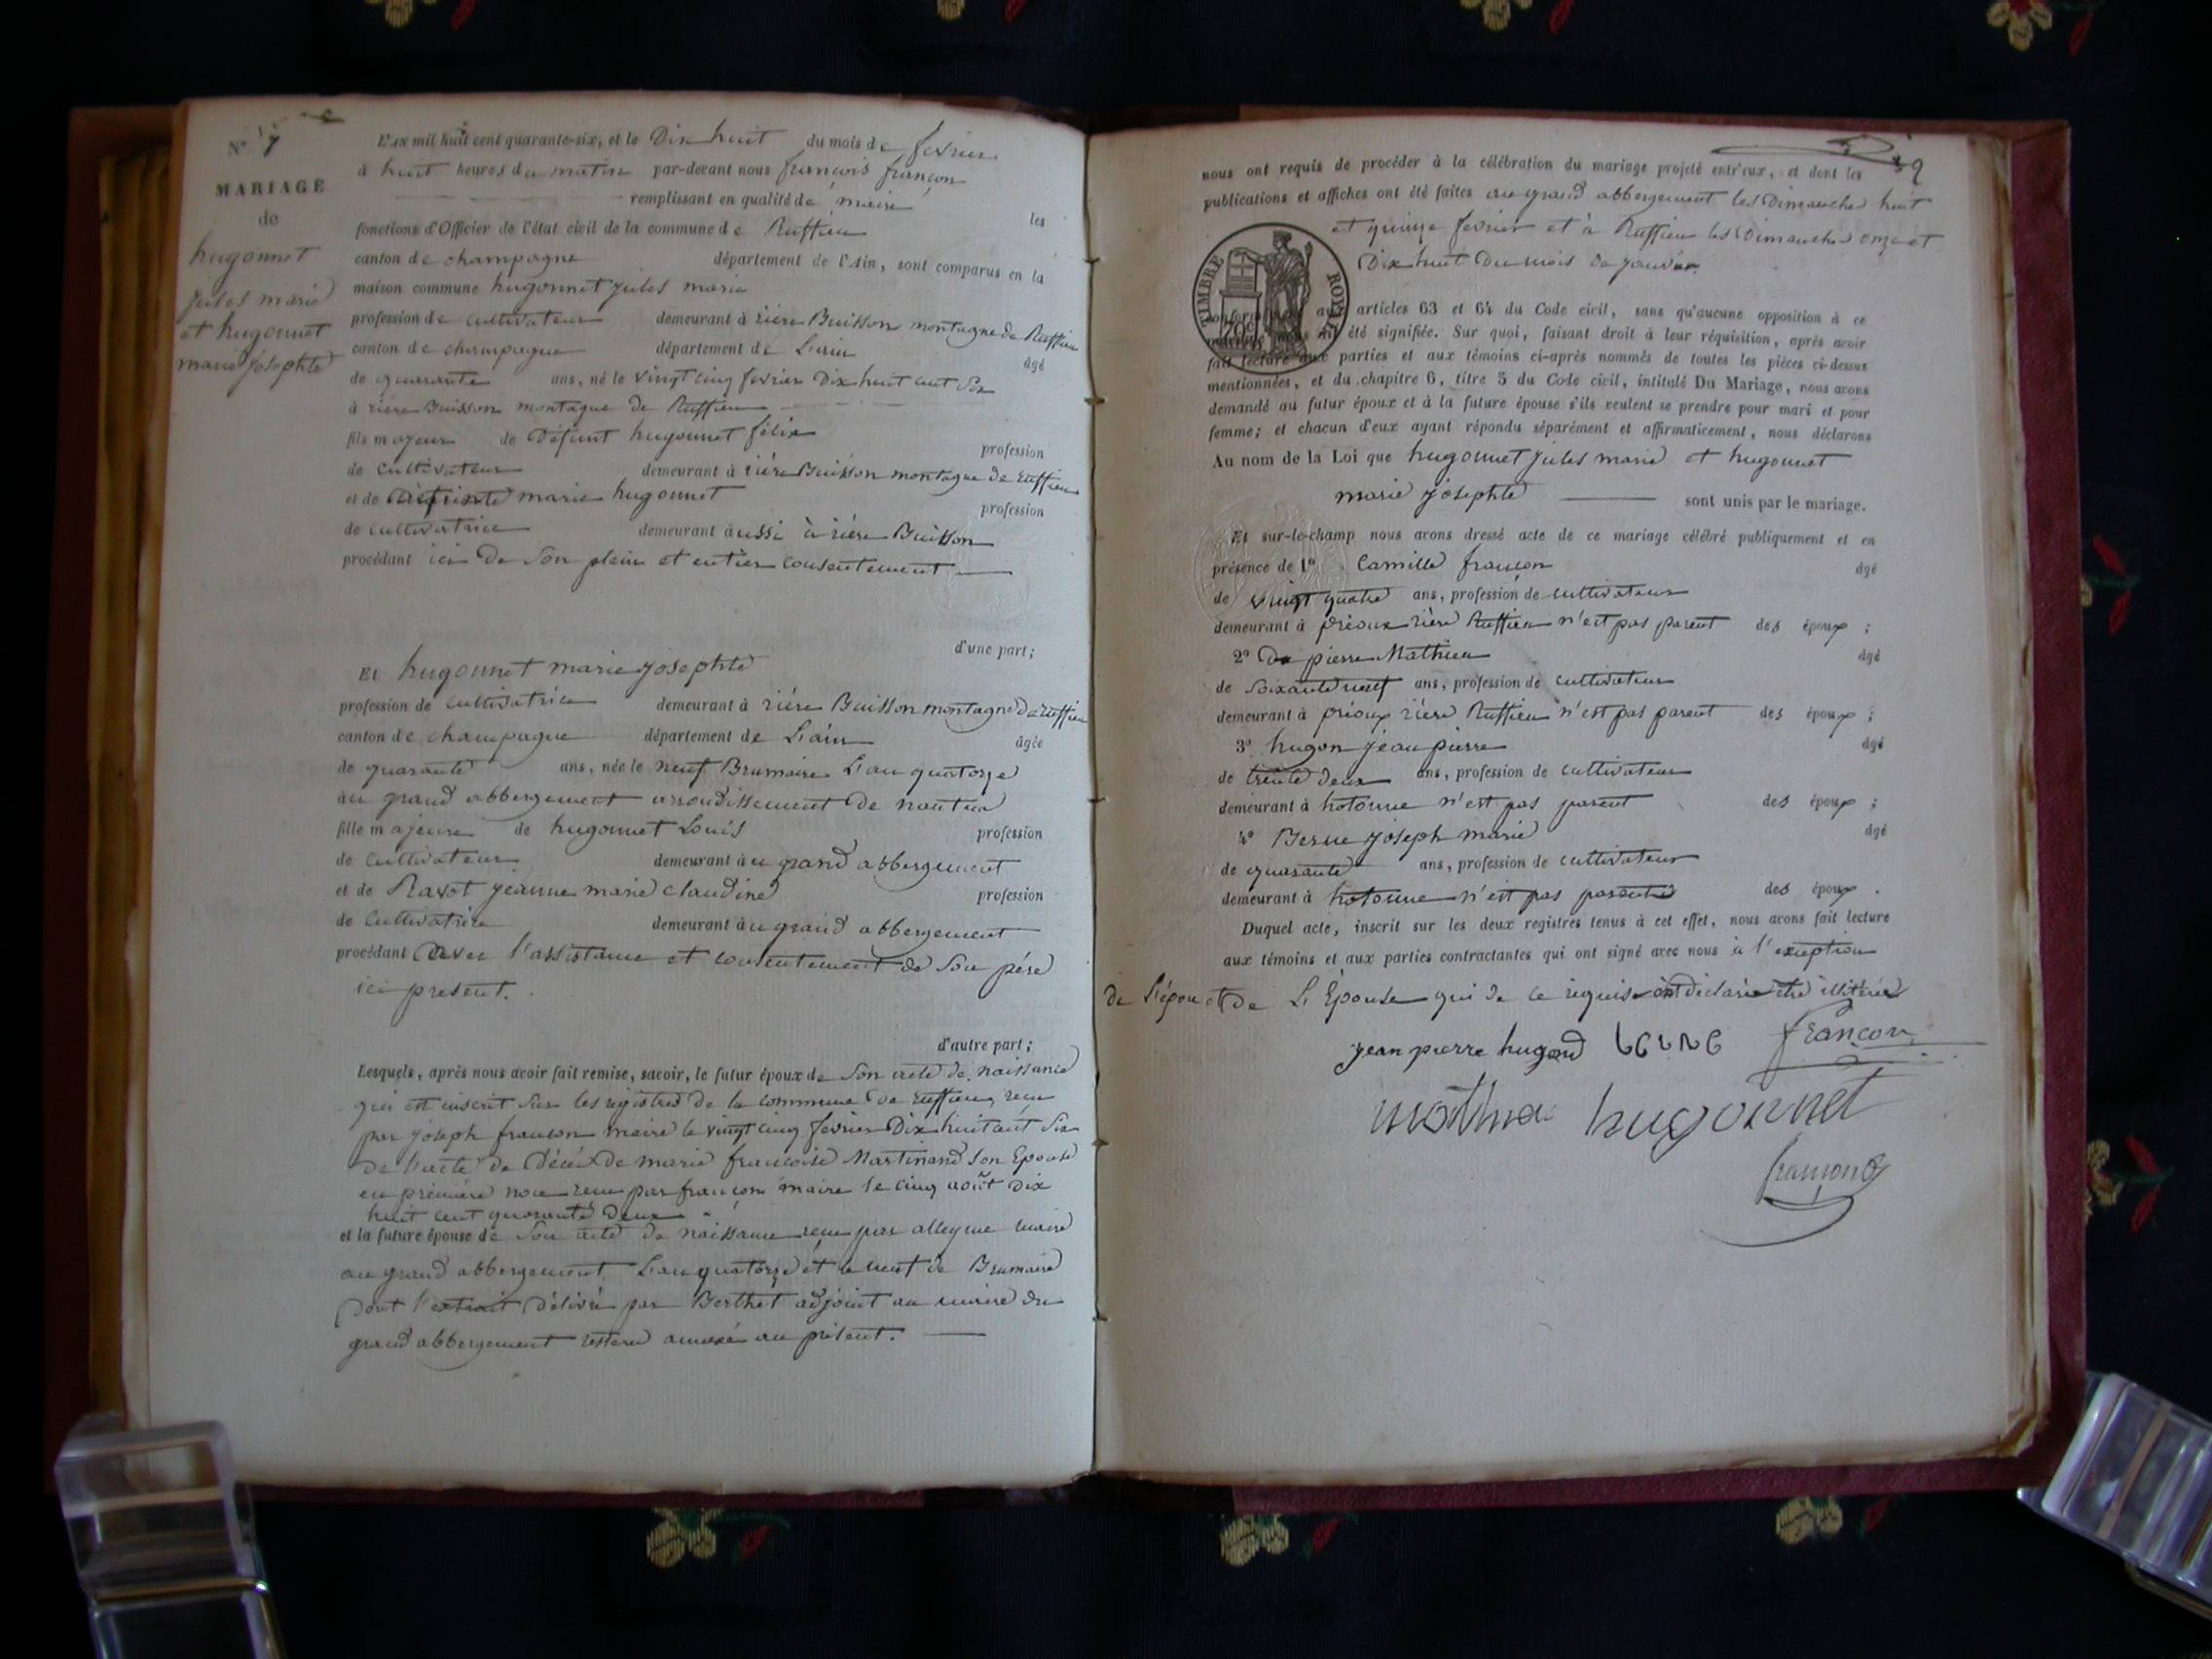 N° 7
MARIAGE
de
hugonnet
jules marie
et hugonnet
marie josephte
L'AN mil huit cent quarante-six, et le Dix huit du mois de fevrier
à huit heures du matin par-devant nous françois françon
remplissant en qualité de maire les
fonctions d'Officier de l'état civil de la commune de Ruffieu
canton de champagne département de l'Ain, sont comparus en la
maison commune hugonnet jules marie
profession de cultivateur demeurant à rière Buisson montagne de Ruffieu
canton de champagne département de L'ain âgé
de quarante ans, né le vingt cinq fevrier Dix huit cent Six
à rière Buisson montagne de Ruffieu
fils majeur de Défunt hugonnet félix profession
de cultivateur demeurant à rière Buisson montagne de ruffieu
et de Défunte marie hugonnet profession
de cultivatrice demeurant aussi à rière Buisson
procédant ici De Son plein et entier consentement
d'une part;
Et hugonnet marie josephte
profession de cultivatrice demeurant à rière Buisson montagne de ruffieu
canton de champagne département de L'ain âgée
de quarante ans, née le neuf Brumaire L'an quatorze
au grand abbergement arrondissement De nantua
fille majeure de hugonnet Louis profession
de cultivateur demeurant au grand abbergement
et de Ravot jeanne marie claudine profession
de cultivatrice demeurant au grand abbergement
procédant avec l'assistance et consentement de Son père
ici present.
d'autre part;
Lesquels, après nous avoir fait remise, savoir, le futur époux de Son acte de naissance
qui est inscrit Sur les registres de la commune de ruffieu, recu
par joseph francon maire le vingt cinq fevrier Dix huit cent Six
De l'acte de Décès de marie francoise Martinand Son Epouse
en première noce recu par françon maire le cinq août Dix
huit cent quarante Deux
et la future épouse de Son acte de naissance recu par alleyne maire
au grand abbergement L'an quatorze et le neuf de Brumaire
Dont l'extrait Délivré par Berthet adjoint au maire du
grand abbergement restera annexé au présent.
nous ont requis de procéder à la célébration du mariage projeté entr'eux, et dont les
publications et affiches ont été faites au grand abbergement les Dimanches huit
et quinze fevrier et à Ruffieu les Dimanches onze et
Dix huit Du mois de janvier
TIMBRE ROYAL
70c
conformément aux articles 63 et 64 du Code civil, sans qu'aucune opposition à ce
mariage nous ait été signifiée. Sur quoi, faisant droit à leur réquisition, après avoir
fait lecture aux parties et aux témoins ci-après nommés de toutes les pièces ci-dessus
mentionnées, et du chapitre 6, titre 5 du Code civil, intitulé Du Mariage, nous avons
demandé au futur époux et à la future épouse s'ils veulent se prendre pour mari et pour
femme; et chacun d'eux ayant répondu séparément et affirmativement, nous déclarons
Au nom de la Loi que hugonnet jules marie et hugonnet
marie josephte sont unis par le mariage.
Et sur-le-champ nous avons dressé acte de ce mariage célébré publiquement et en
présence de 1° Camille françon âgé
de vingt quatre ans, profession de cultivateur
demeurant à prioux rière Ruffieu n'est pas parent des époux;
2° De pierre Mathieu âgé
de Soixante neuf ans, profession de cultivateur
demeurant à prioux rière Ruffieu n'est pas parent des époux;
3° hugon jean pierre âgé
de trente deux ans, profession de cultivateur
demeurant à hotonne n'est pas parent des époux;
4° Berne joseph marie âgé
de quarante ans, profession de cultivateur
demeurant à hotonne n'est pas parente des époux.
Duquel acte, inscrit sur les deux registres tenus à cet effet, nous avons fait lecture
aux témoins et aux parties contractantes qui ont signé avec nous à l'exeption
de L'épou et de L'Epouse qui de ce requis ont déclaré être illitérés
jean pierre hugond françon
hugonnet